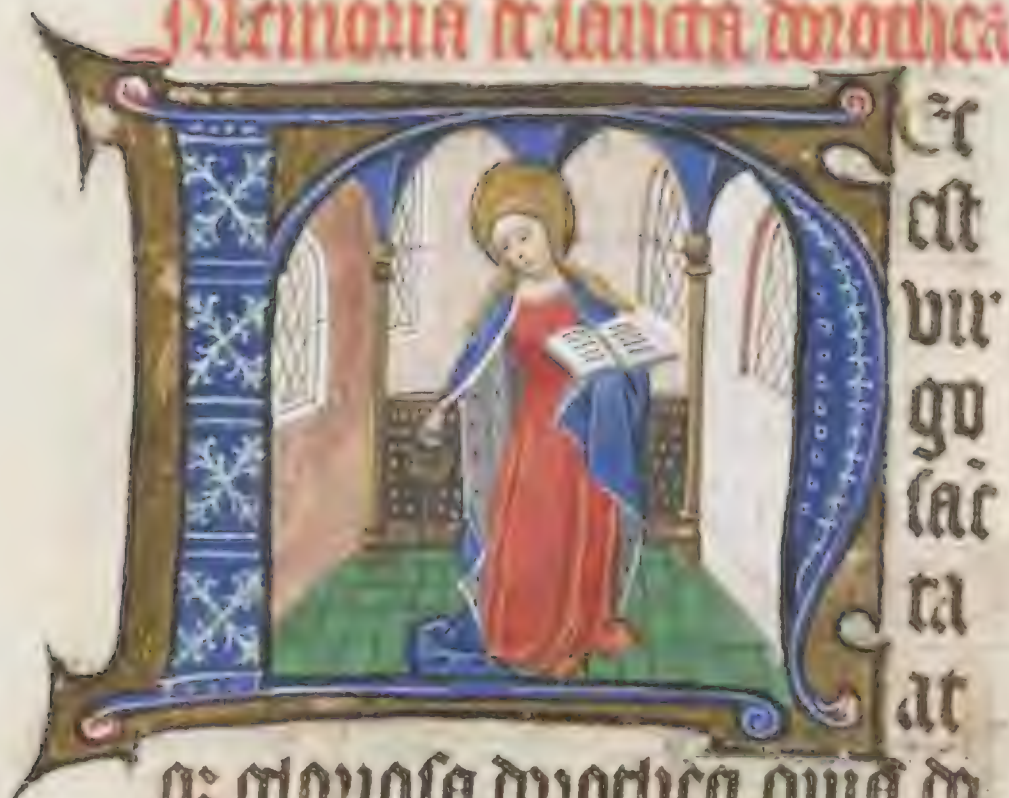 Memoria de sancta dorothea
Hec
est
vir
go
sāc
ta
at
q; gloriosa dorothea quia do